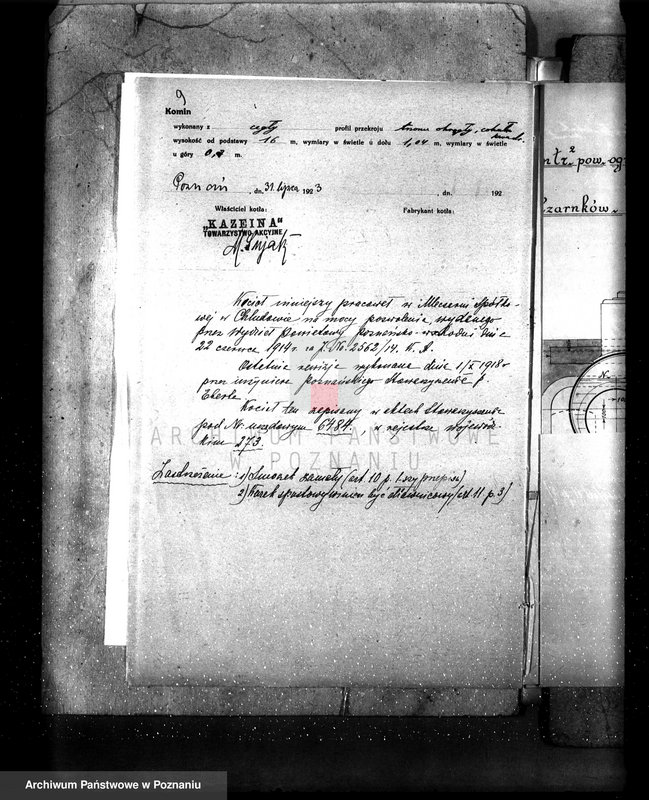 9
Komin
wykonany z cegły profil przekroju trzonu okrągły, cokołu kwadr.
wysokość od podstawy 16 m, wymiary w świetle u dołu 1,04 m, wymiary w świetle
u góry 0,8 m.
Poznań, dn. 31 lipca 1923 , dn. 192
Właściciel kotła: Fabrykant kotła:
„KAZEINA"
TOWARZYSTWO AKCYJNE
Kocioł niniejszy pracował w Mleczarni Spółko-
wej w Chludowie na mocy pozwolenia wydanego
przez Wydział Powiatowy poznańsko-wschodni dnia
22 czerwca 1914 r. za J. Nr. 2562/14. K. A.
Ostatnia rewizja wykonana dnia 1/X 1918 r
przez inżyniera poznańskiego Stowarzyszenia p.
Eberle
Kocioł ten zapisany w aktach Stowarzyszenia
pod Nr. urzędowym 6484. w rejestrze wojewódz-
kim 273.
ARCHIWUM PAŃSTWOWE
W POZNANIU
Zastrzeżenie: 1) Smoczek zamały (art. 10 p. 1
2) Kurek spustowy winien być dławnicowy (art. 11 p. 3)
mtr.² pow. ogr
Czarnków
N.
Archiwum Państwowe w Poznaniu